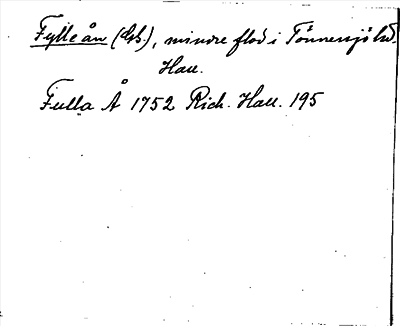 Fylleån (Gsb.), mindre flod i Tönnersjö hd.
Hall.
Fulla Å 1752 Rich. Hall. 195